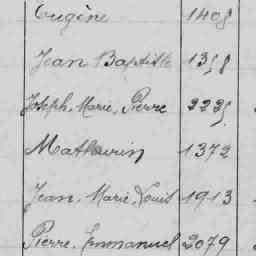 Eugène 1408
Jean Baptiste 1358
Joseph, Marie, Pierre 2235
Mathurin 1372
Jean, Marie, Louis 1913
Pierre, Emmanuel 2079